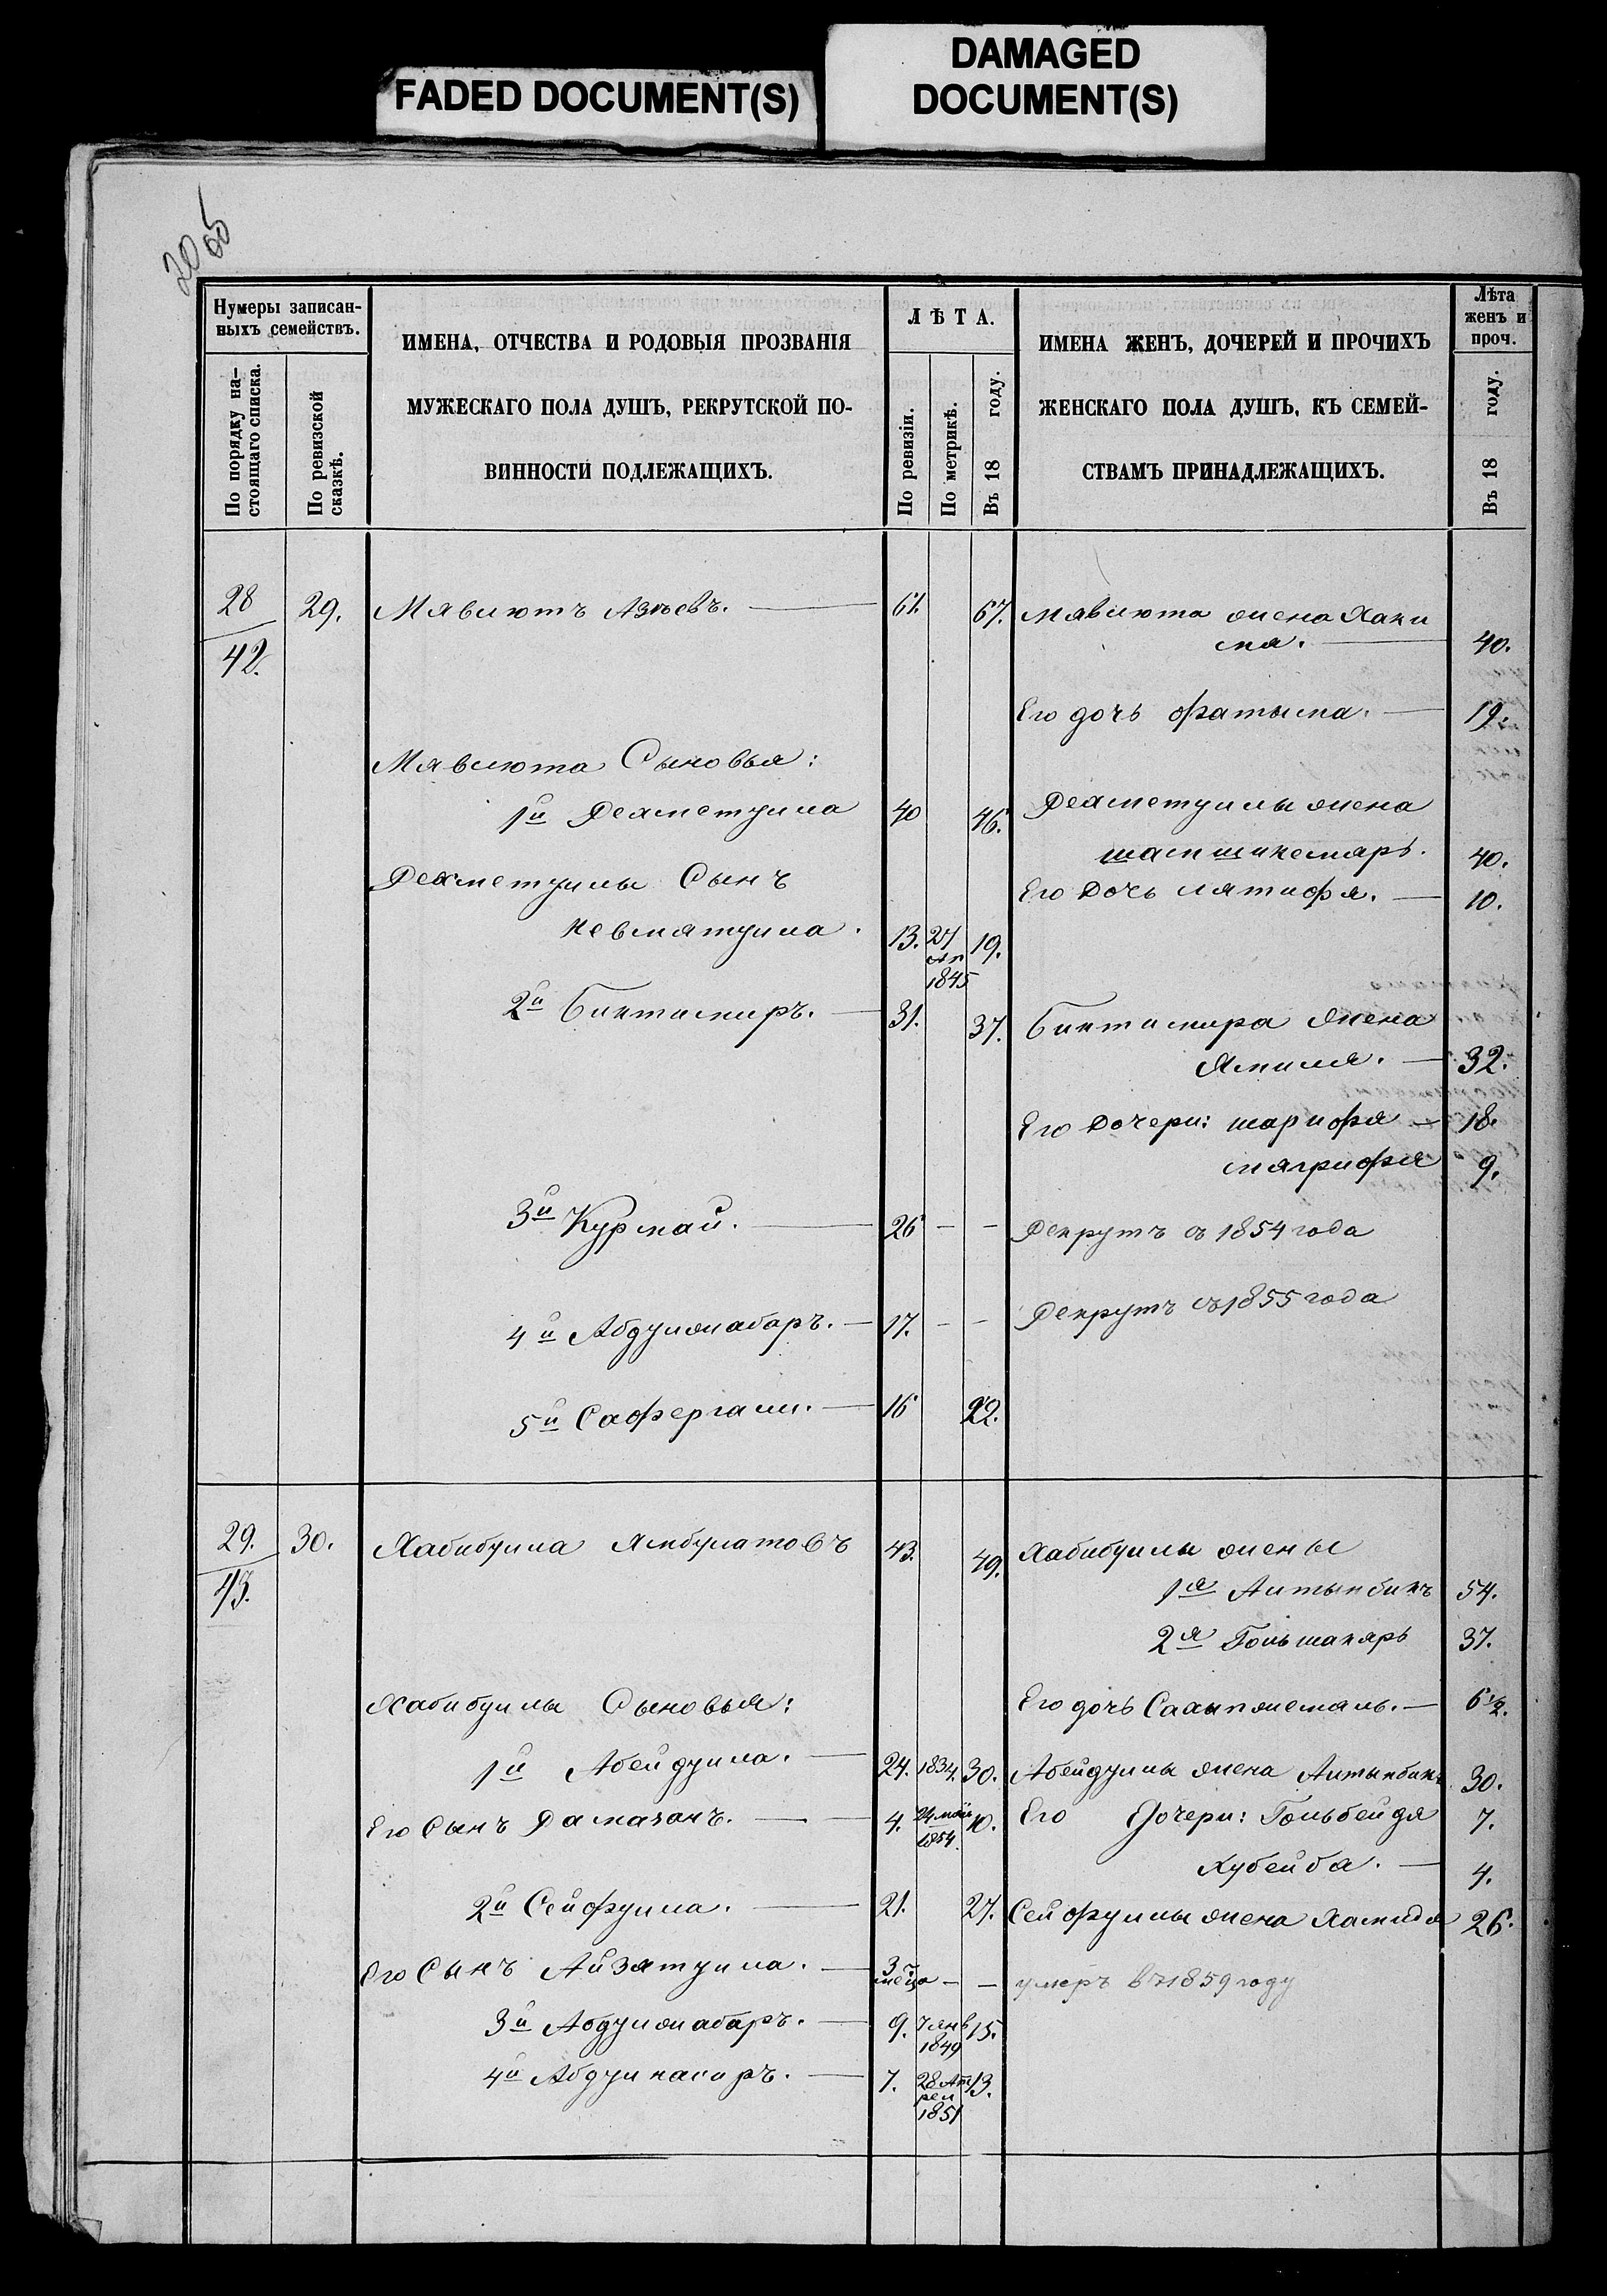 FADED DOCUMENT(S)
DAMAGED
DOCUMENT(S)
Нумеры записан-
ныхъ семействъ.
По порядку на-
стоящаго списка.
По ревизской
сказкѣ.
ИМЕНА, ОТЧЕСТВА И РОДОВЫЯ ПРОЗВАНІЯ
МУЖЕСКАГО ПОЛА ДУШЪ, РЕКРУТСКОЙ ПО-
ВИННОСТИ ПОДЛЕЖАЩИХЪ.
ЛѢТА.
По ревизіи.
По метрикѣ.
Въ 18 году.
ИМЕНА ЖЕНЪ, ДОЧЕРЕЙ И ПРОЧИХЪ
ЖЕНСКАГО ПОЛА ДУШЪ, КЪ СЕМЕЙ-
СТВАМЪ ПРИНАДЛЕЖАЩИХЪ.
Лѣта
женъ и
проч.
Въ 18 году.
28 29. Мявлютъ Азѣевъ. 61. 67. Мявлюта жена Хаки
42. ма. 40.
Его дочь Фатыма. 19.
Мявлюта Сыновья:
1й Рехметулла 40 46. Рехметуллы жена
шамшикемаръ. 40.
Рехметуллы Сынъ Его Дочь Лятифя. 10.
Невматулла. 13. 27 19.
Ап
1845
2й Биктимиръ. 31. 37. Биктимира жена
Ямиля. 32.
Его Дочери: шарифя 18.
мягрифя 9.
3й Курмай. 26 — — Рекрутъ съ 1854 года
4й Абдулжабаръ. 17. — — Рекрутъ съ 1855 года
5й Сафергали. 16 22.
29. 30. Хабибулла Ямбулатовъ 43. 49. Хабибуллы жены
43. 1я Алтынбикъ 54.
2я Гольшакяръ 37.
Хабибуллы Сыновья: Его дочь 6 1/2.
1й Абейдулла. 24. 1834. 30. Абейдуллы жена Алтынбикъ 30.
Его Сынъ Рамазанъ. 4. 24 май 10. Его Дочери: Гольбейдя 7.
1854.
Хубейба. 4.
2й Сейфулла. 21. 27. Сейфуллы жена Хамидя 26.
Его Сынъ Айзятулла. 3 — — умеръ въ 1859 году
меца
3й Абдулжабаръ. 9. 7 янв 15.
1849
4й Абдулнасиръ. 7. 28 Ап 13.
рел
1851